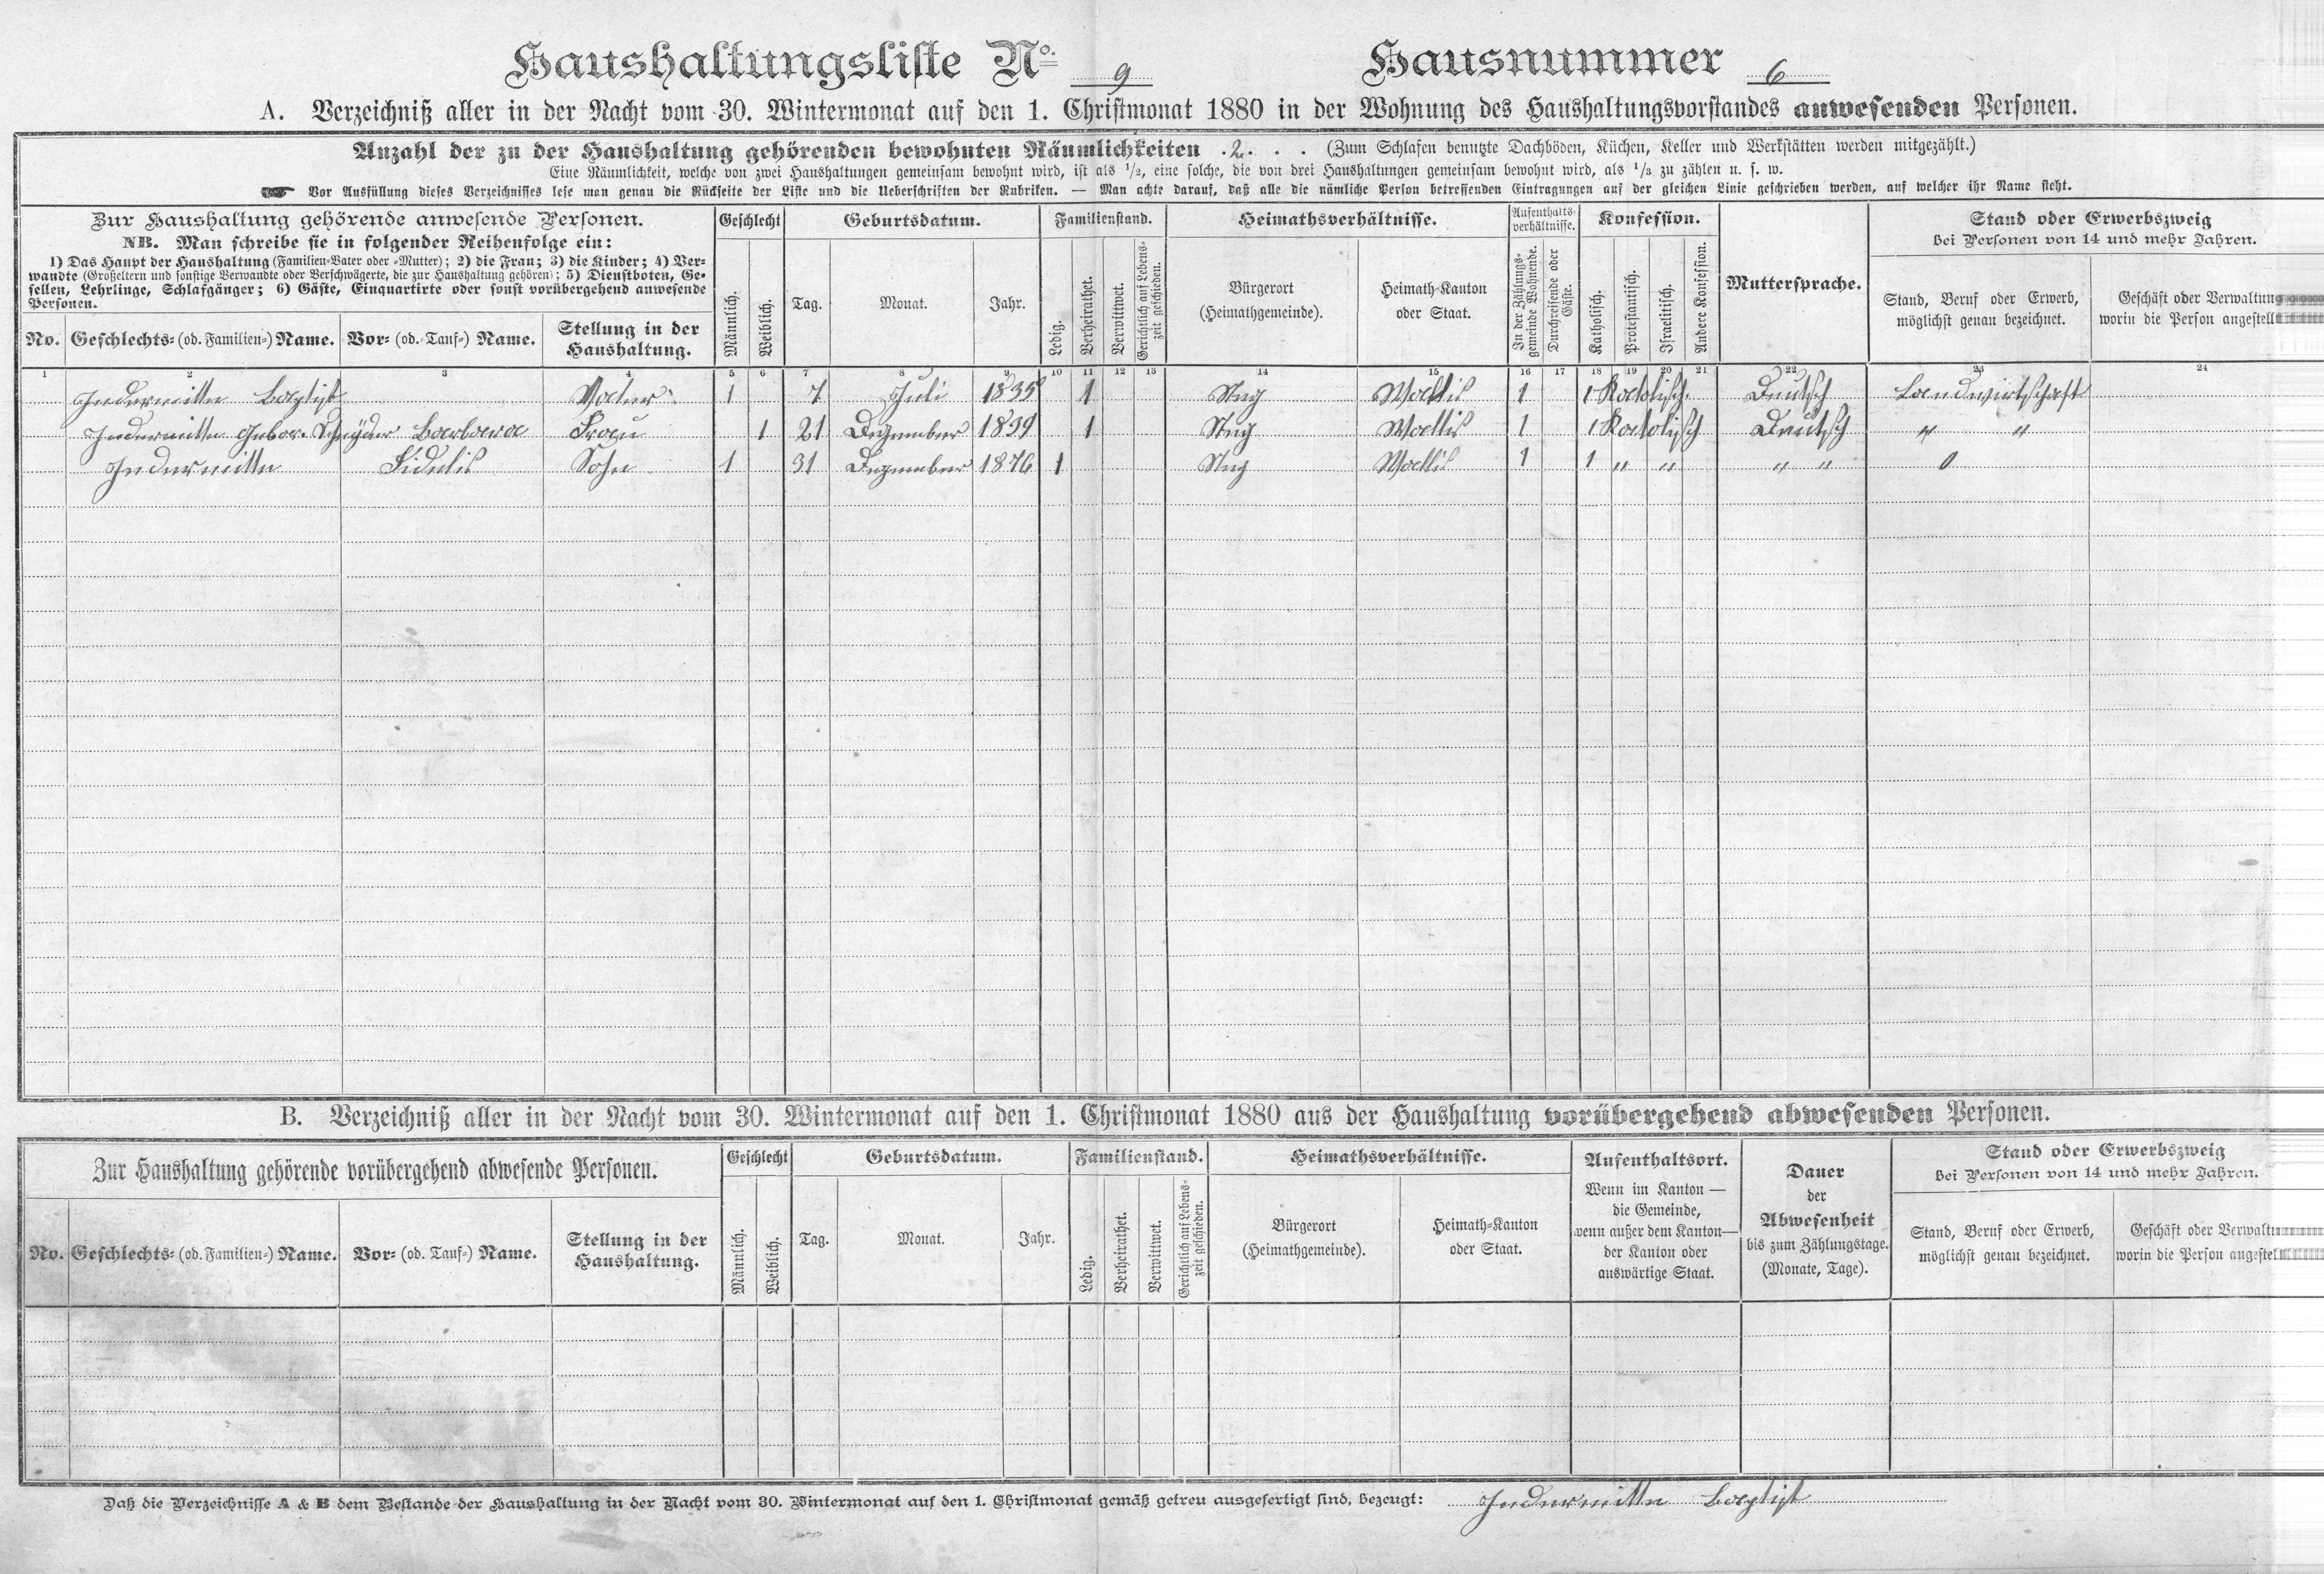 Haushaltungsliste No. 9 Hausnummer 6
A. Verzeichniß aller in der Nacht vom 30. Wintermonat auf den 1. Christmonat 1880 in der Wohnung des Haushaltungsvorstandes anwesenden Personen.
Anzahl der zu der Haushaltung gehörenden bewohnten Räumlichkeiten . 2 . . . (Zum Schlafen benutzte Dachböden, Küchen, Keller und Werkstätten werden mitgezählt.)
Eine Räumlichkeit, welche von zwei Haushaltungen gemeinsam bewohnt wird, ist als 1/2, eine solche, die von drei Haushaltungen gemeinsam bewohnt wird, als 1/3 zu zählen u. s. w.
☛ Vor Ausfüllung dieses Verzeichnisses lese man genau die Rückseite der Liste und die Ueberschriften der Rubriken. — Man achte darauf, daß alle die nämliche Person betreffenden Eintragungen auf der gleichen Linie geschrieben werden, auf welcher ihr Name steht.
Zur Haushaltung gehörende anwesende Personen.
NB. Man schreibe sie in folgender Reihenfolge ein:
1) Das Haupt der Haushaltung (Familien-Vater oder -Mutter); 2) die Frau; 3) die Kinder; 4) Ver-
wandte (Großeltern und sonstige Verwandte oder Verschwägerte, die zur Haushaltung gehören); 5) Dienstboten, Ge-
sellen, Lehrlinge, Schlafgänger; 6) Gäste, Einquartirte oder sonst vorübergehend anwesende
Personen.
No. Geschlechts- (od. Familien-) Name. Vor- (od. Tauf-) Name. Stellung in der
Haushaltung.
Geschlecht
Männlich. Weiblich.
Geburtsdatum.
Tag. Monat. Jahr.
Familienstand.
Ledig. Verheirathet. Verwittwet. Gerichtlich auf Lebens-
zeit geschieden.
Heimathsverhältnisse.
Bürgerort
(Heimathgemeinde).
Heimath-Kanton
oder Staat.
Aufenthalts-
verhältnisse.
In der Zählungs-
gemeinde Wohnende.
Durchreisende oder
Gäste.
Konfession.
Katholisch. Protestantisch. Israelitisch. Andere Konfession.
Muttersprache.
Stand oder Erwerbszweig
bei Personen von 14 und mehr Jahren.
Stand, Beruf oder Erwerb,
möglichst genau bezeichnet.
Geschäft oder Verwaltung
worin die Person angestellt
1 2 3 4 5 6 7 8 9 10 11 12 13 14 15 16 17 18 19 20 21 22 23 24
Indermitte Baptist Vater 1 7 Juli 1835 1 Steg Wallis 1 1 Katolisch. Deutsch Landwirtschaft
Indermitte gebor. Schnyder Barbara Frau 1 21 Dezember 1839 1 Steg Wallis 1 1 Katolisch Deutsch " "
Indermitte Fidelis Sohn 1 31 Dezember 1876 1 Steg Wallis 1 1 " " " " 0
B. Verzeichniß aller in der Nacht vom 30. Wintermonat auf den 1. Christmonat 1880 aus der Haushaltung vorübergehend abwesenden Personen.
Zur Haushaltung gehörende vorübergehend abwesende Personen.
No. Geschlechts- (od. Familien-) Name. Vor- (od. Tauf-) Name. Stellung in der
Haushaltung.
Geschlecht
Männlich. Weiblich.
Geburtsdatum.
Tag. Monat. Jahr.
Familienstand.
Ledig. Verheirathet. Verwittwet. Gerichtlich auf Lebens-
zeit geschieden.
Heimathsverhältnisse.
Bürgerort
(Heimathgemeinde).
Heimath-Kanton
oder Staat.
Aufenthaltsort.
Wenn im Kanton —
die Gemeinde,
wenn außer dem Kanton—
der Kanton oder
auswärtige Staat.
Dauer
der
Abwesenheit
bis zum Zählungstage.
(Monate, Tage).
Stand oder Erwerbszweig
bei Personen von 14 und mehr Jahren.
Stand, Beruf oder Erwerb,
möglichst genau bezeichnet.
Geschäft oder Verwaltu
worin die Person angestel
Daß die Verzeichnisse A & B dem Bestande der Haushaltung in der Nacht vom 30. Wintermonat auf den 1. Christmonat gemäß getreu ausgefertigt sind, bezeugt: Indermitte Baptist